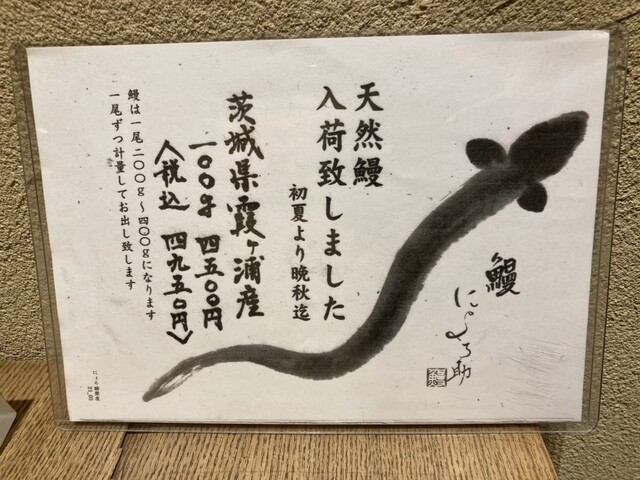 天然鰻
入荷致しました
初夏より晩秋迄
茨城県霞ヶ浦産
一〇〇g 四五〇〇円
〈税込 四九五〇円〉
鰻は一尾二〇〇g〜四〇〇gになります
一尾ずつ計量してお出し致します
鰻
にょろ助